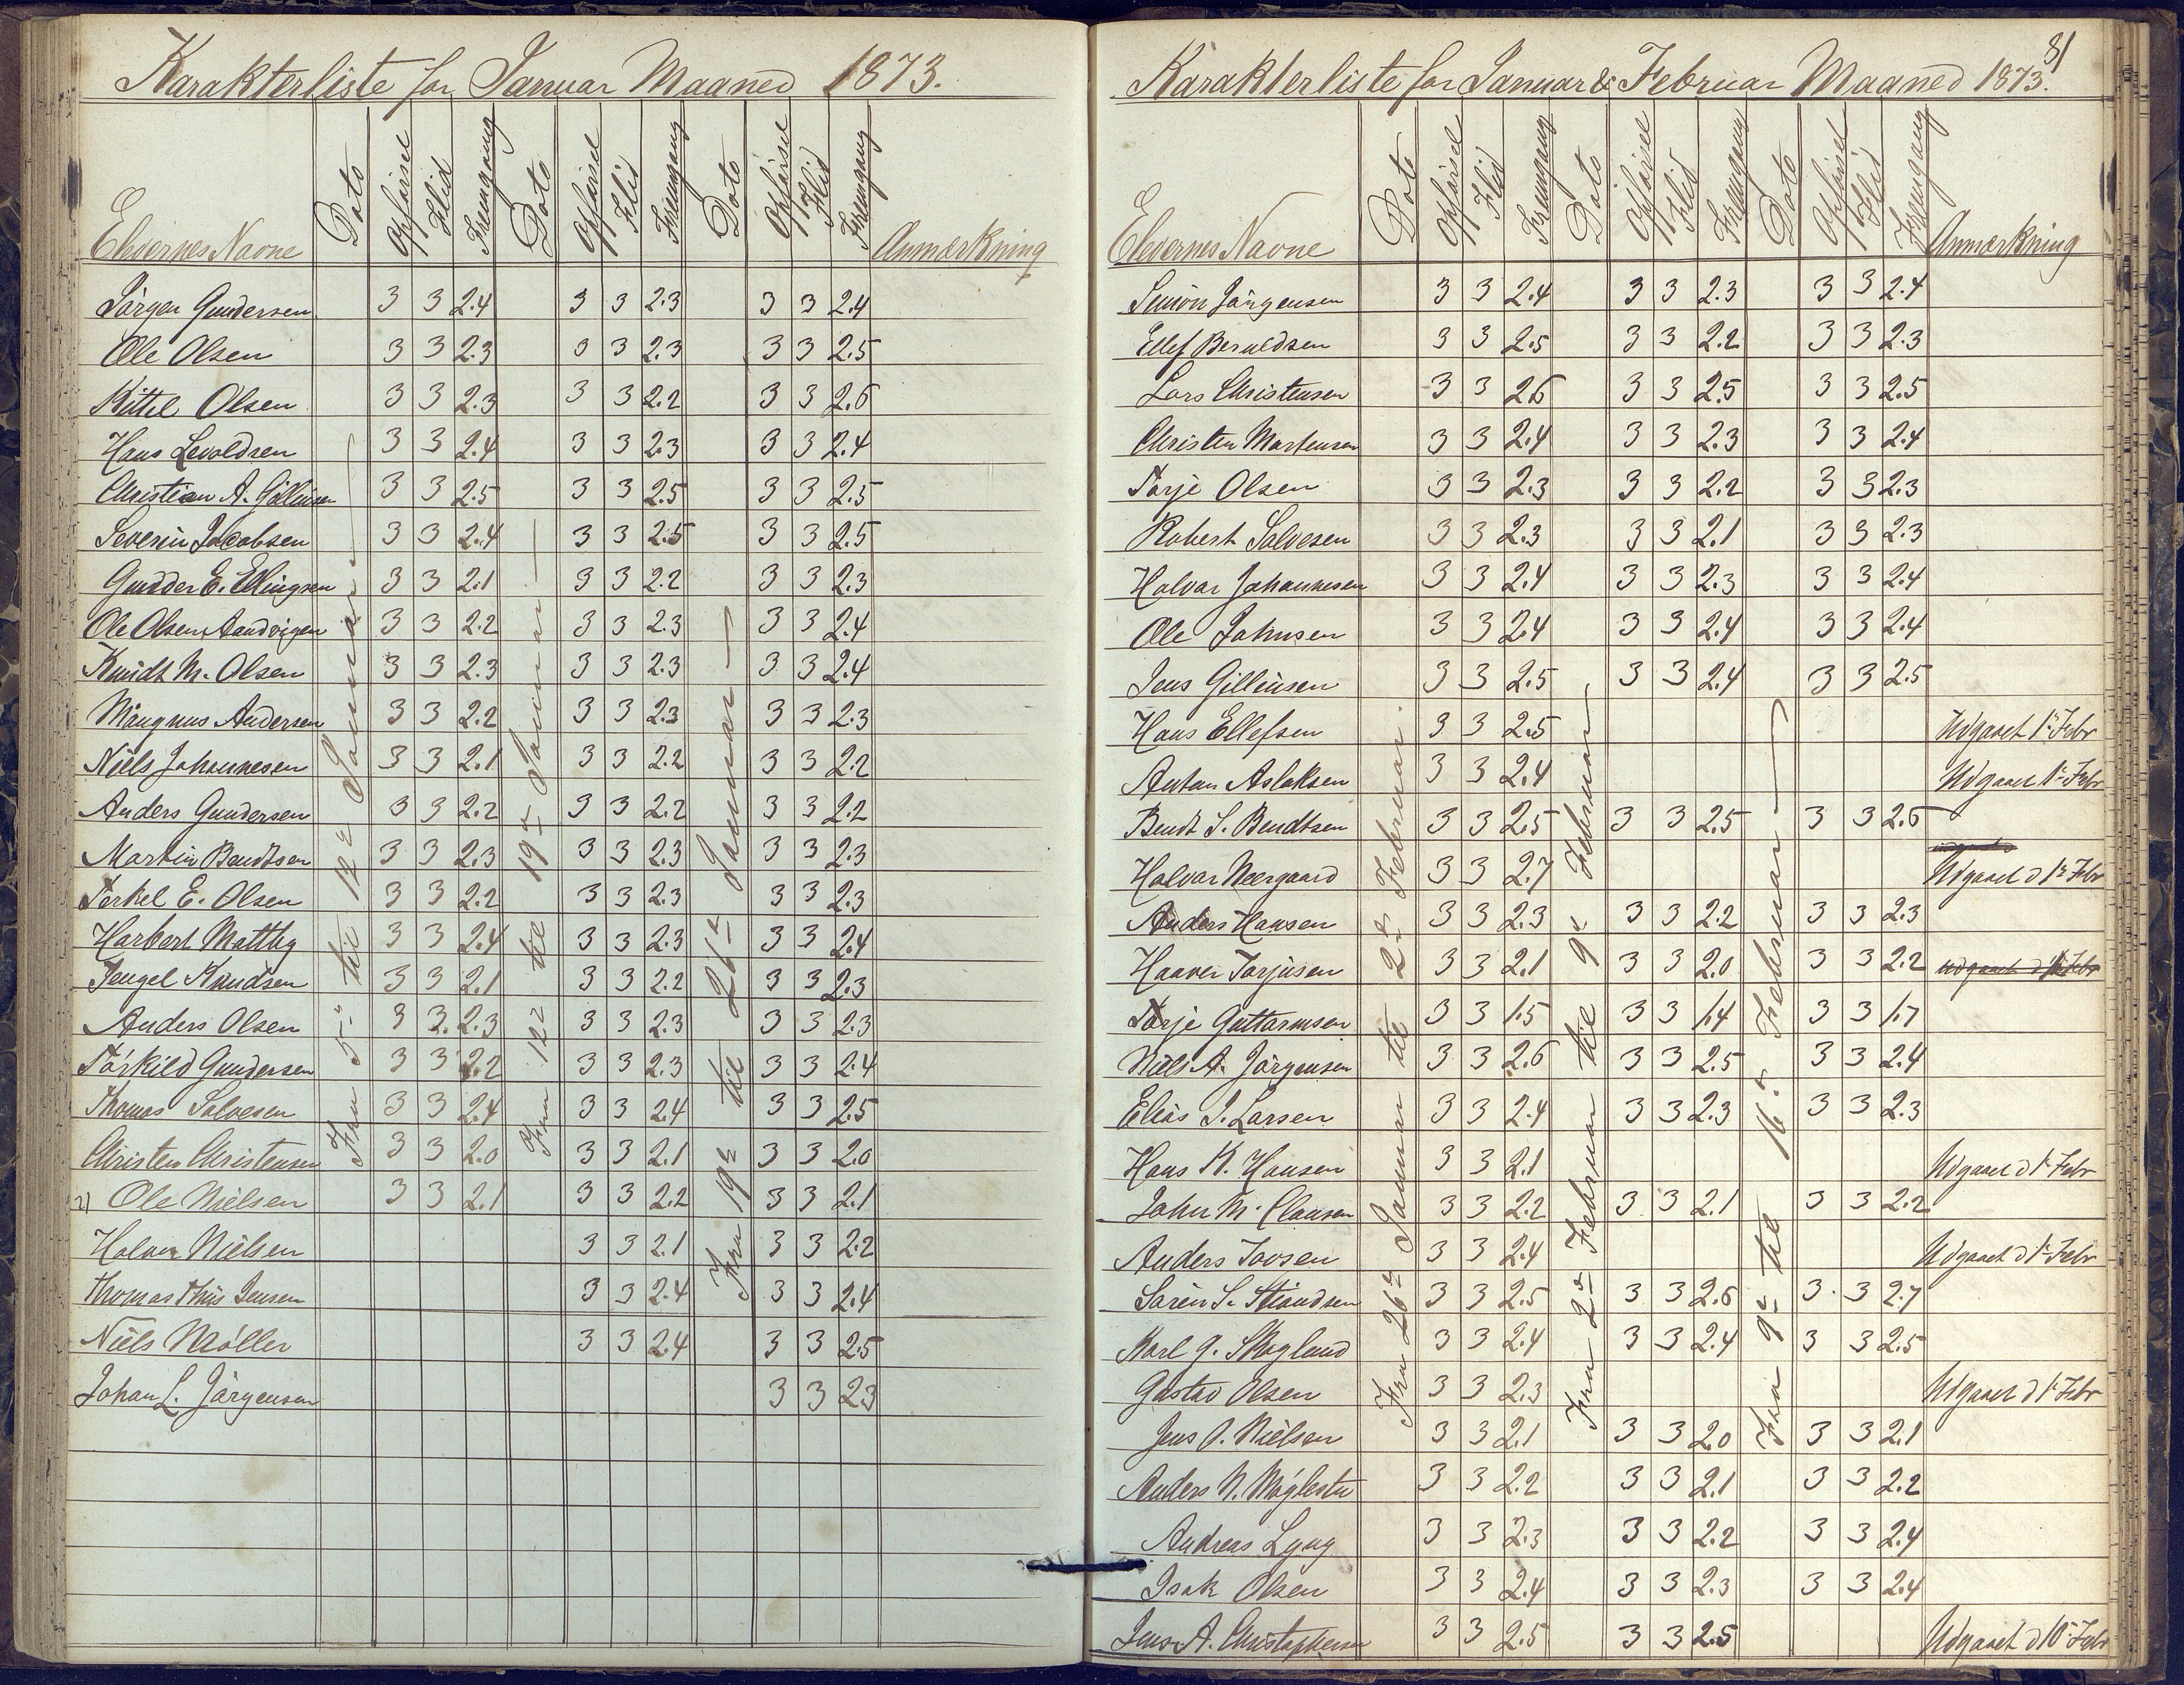 Karakterliste for Januar Maaned 1873.
Elevernes Navne Dato Opførsel Flid Fremgang Dato Opførsel Flid Fremgang Dato Opførsel Flid Fremgang Anmærkning
Fra 5te til 12te Januar
Fra 12te til 19de Januar
Fra 19de til 26de Januar
Jörgen Gundersen 3 3 2.4 3 3 2.3 3 3 2.4
Ole Olsen 3 3 2.3 3 3 2.3 3 3 2.5
Kittel Olsen 3 3 2.3 3 3 2.2 3 3 2.6
Hans Levoldsen 3 3 2.4 3 3 2.3 3 3 2.4
Christian A. 3 3 2.5 3 3 2.5 3 3 2.5
Severin Jacobsen 3 3 2.4 3 3 2.5 3 3 2.5
Gudder E. Ellingsen 3 3 2.1 3 3 2.2 3 3 2.3
Ole Olsen Aandvigen 3 3 2.2 3 3 2.3 3 3 2.4
Knudt M. Olsen 3 3 2.3 3 3 2.3 3 3 2.4
Mangnus Andersen 3 3 2.2 3 3 2.3 3 3 2.3
Niels Johannesen 3 3 2.1 3 3 2.2 3 3 2.2
Anders Gundersen 3 3 2.2 3 3 2.2 3 3 2.2
Martin Bendtsen 3 3 2.3 3 3 2.3 3 3 2.3
Terkel E. Olsen 3 3 2.2 3 3 2.3 3 3 2.3
Harbert Mattby 3 3 2.4 3 3 2.3 3 3 2.4
Tengel Knudsen 3 3 2.1 3 3 2.2 3 3 2.3
Anders Olsen 3 3. 2.3 3 3 2.3 3 3 2.3
Törkild Gundersen 3 3 2.2 3 3 2.3 3 3 2.4
Thomas Salvesen 3 3 2.4 3 3 2.4 3 3 2.5
Christen Christensen 3 3 2.0 3 3 2.1 3 3 2.0
21 Ole Nielsen 3 3 2.1 3 3 2.2 3 3 2.1
Halvor Nielsen 3 3 2.1 3 3 2.2
Thomas Thiis Jensen 3 3 2.4 3 3 2.4
Niels Møller 3 3 2.4 3 3 2.5
Johan L. Jörgensen 3 3 2.3
81
Karakterliste for Januar & Februar Maaned 1873.
Elevernes Navne Dato Opførsel Flid Fremgang Dato Opførsel Flid Fremgang Dato Opførsel Flid Fremgang Anmærkning
Fra 26de Januar til 2de Februar.
Fra 2de Februar til 9de Februar
Fra 9de til 16de Februar
Simon Jörgensen 3 3 2.4 3 3 2.3 3 3 2.4
Ellef Beruldsen 3 3 2.5 3 3 2.2 3 3 2.3
Lars Christensen 3 3 2.6 3 3 2.5 3 3 2.5
Christen Mortensen 3 3 2.4 3 3 2.3 3 3 2.4
Torje Olsen 3 3 2.3 3 3 2.2 3 3 2.3
Robert Salvesen 3 3 2.3 3 3 2.1 3 3 2.3
Halvar Johannesen 3 3 2.4 3 3 2.3 3 3 2.4
Ole Johnsen 3 3 2.4 3 3 2.4 3 3 2.4
Jens Gilleusen 3 3 2.5 3 3 2.4 3 3 2.5
Hans Ellefsen 3 3 2.5 Udgaaet 1te Febr
Anton Aslaksen 3 3 2.4 Udgaaet 1te Febr
Bendt S. Bendtsen 3 3 2.5 3 3 2.5 3 3 2.6
Halvar Neergaard 3 3 2.7 Udgaaet d 1te Febr
Anders Hansen 3 3 2.3 3 3 2.2 3 3 2.3
Haaver Torjusen 3 3 2.1 3 3 2.0 3 3 2.2 Udgaaet d 1te Febr
Torje Guttormsen 3 3 1.5 3 3 1.4 3 3 1.7
Niels A. Jörgensen 3 3 2.6 3 3 2.5 3 3 2.4
Elias J. Larsen 3 3 2.4 3 3 2.3 3 3 2.3
Hans K. Hansen 3 3 2.1 Udgaaet d 1te Febr
John M. Clausen 3 3 2.2 3 3 2.1 3 3 2.2
Anders Toosen 3 3 2.4 Udgaaet d 1te Febr
Sören S. 3 3 2.5 3 3 2.6 3. 3 2.7
Karl G. Skoglund 3 3 2.4 3 3 2.4 3 3 2.5
Gustav Olsen 3 3 2.3 Udgaaet d 1te Febr
Jens O. Nielsen 3 3 2.1 3 3 2.0 3 3 2.1
Anders N. Möglestu 3 3 2.2 3 3 2.1 3 3 2.2
Andreas Lyng 3 3 2.3 3 3 2.2 3 3 2.4
Isak Olsen 3 3 2.4 3 3 2.3 3 3 2.4
Jens A. Christophersen 3 3 2.5 3 3 2.5 Udgaaet d 10de Febr